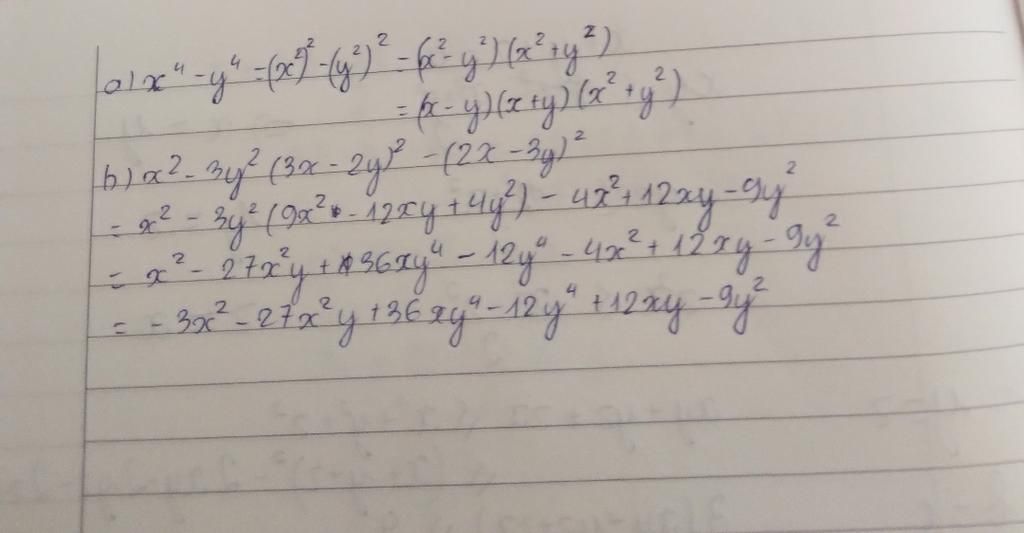 a) x⁴ - y⁴ = (x²)² - (y²)² = (x² - y²)(x² + y²)
= (x - y)(x + y)(x² + y²)
b) x² - 3y² (3x - 2y)² - (2x - 3y)²
= x² - 3y² (9x² - 12xy + 4y²) - 4x² + 12xy - 9y²
= x² - 27x²y + 36xy⁴ - 12y⁴ - 4x² + 12xy - 9y²
= - 3x² - 27x²y + 36xy⁴ - 12y⁴ + 12xy - 9y²